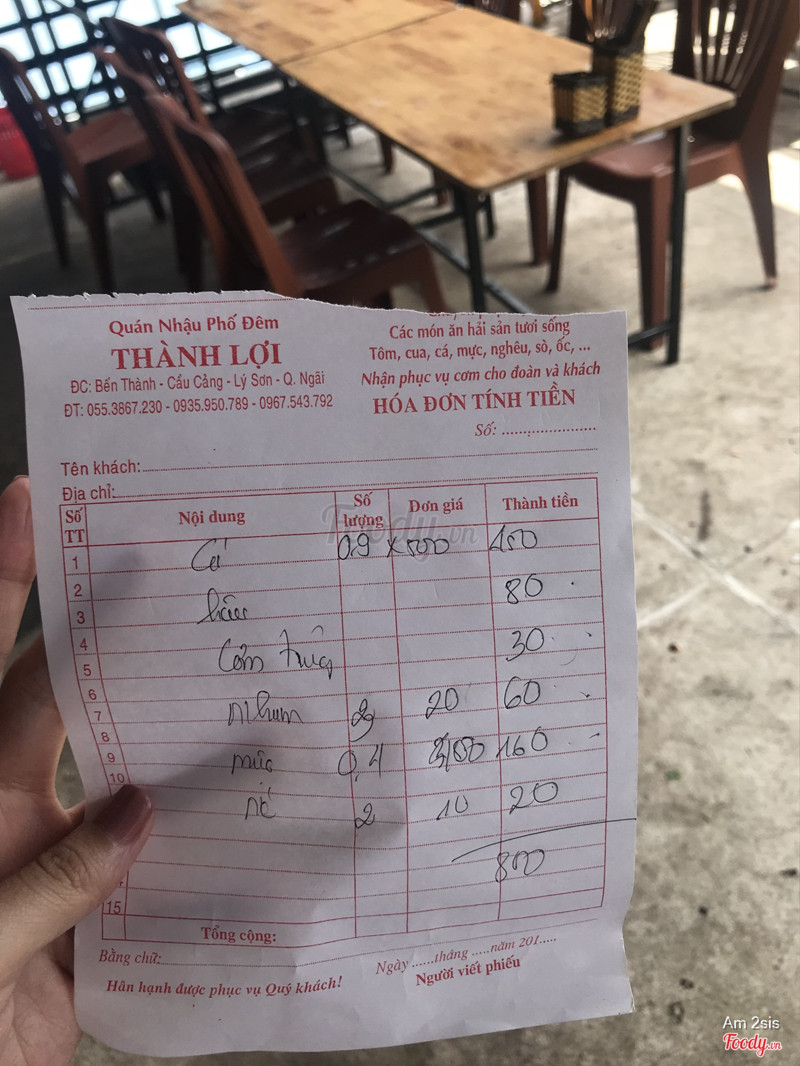 Quán Nhậu Phố Đêm
THÀNH LỢI
ĐC: Bến Thành - Cầu Cảng - Lý Sơn - Q. Ngãi
ĐT: 055.3867.230 - 0935.950.789 - 0967.543.792
Các món ăn hải sản tươi sống
Tôm, cua, cá, mực, nghêu, sò, ốc, ...
Nhận phục vụ cơm cho đoàn và khách
HÓA ĐƠN TÍNH TIỀN
Số: ......................
Tên khách:
Địa chỉ:
Số TT Nội dung Số lượng Đơn giá Thành tiền
1 Cá 0.9 x 500 450
2 80
3 hàu
4 30
5 Cơm trắng
6 60
7 Nhum 3 20
8 160
9 mực 0,4 400
10 20
2 10
800
15
Tổng cộng:
Bằng chữ:
Ngày ......tháng .....năm 201.....
Hân hạnh được phục vụ Quý khách!
Người viết phiếu
Foody.vn
Am 2sis
Foody.vn